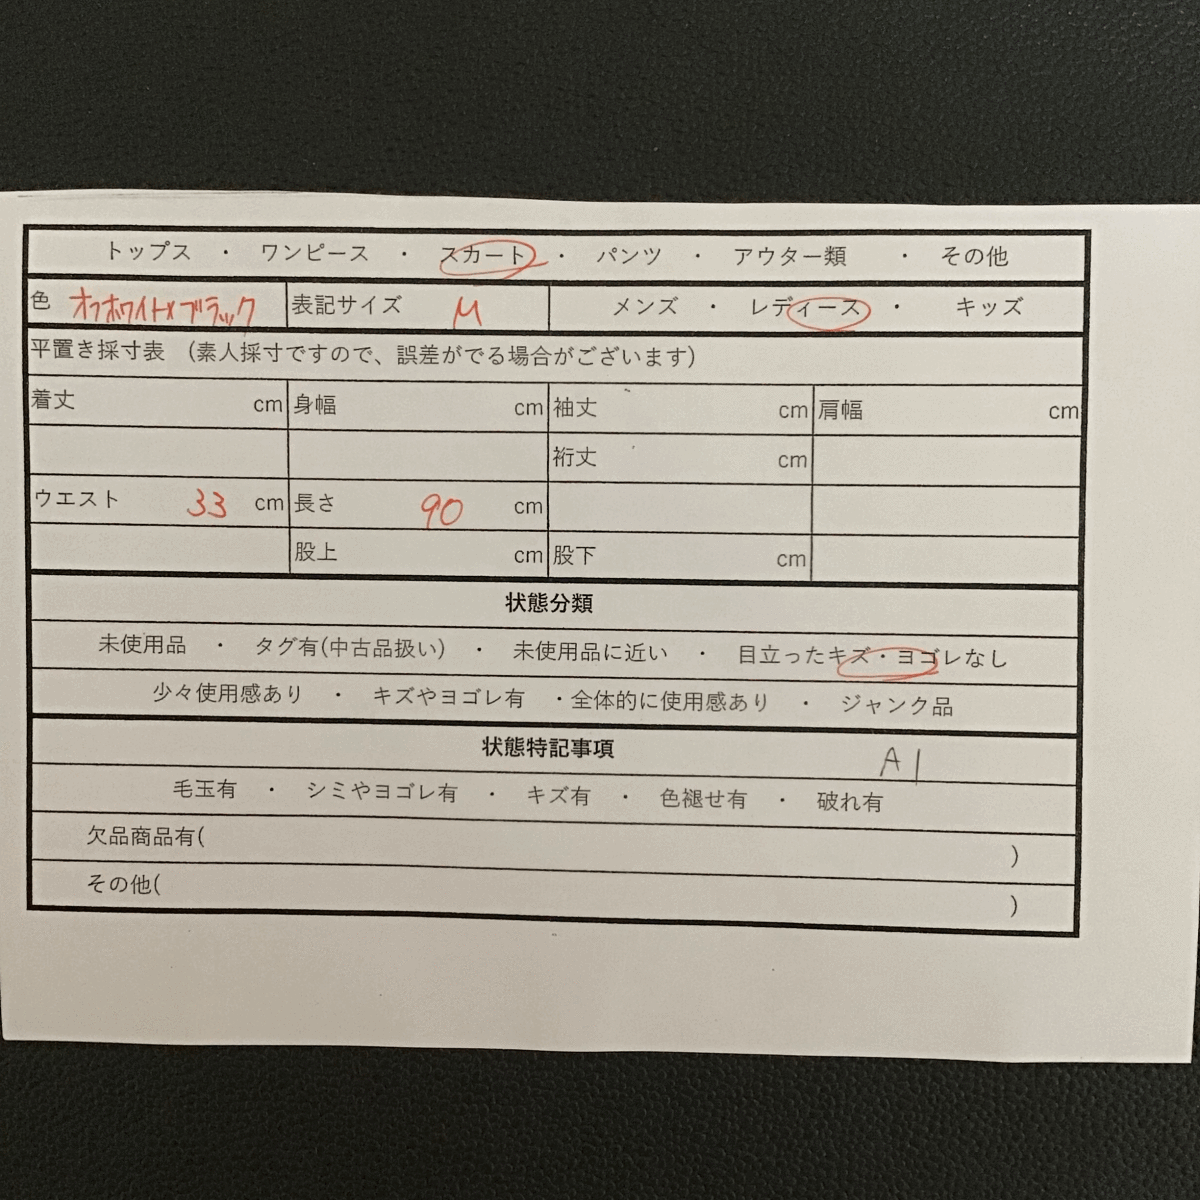 トップス ・ ワンピース ・ スカート ・ パンツ ・ アウター類 ・ その他
色 オフホワイト×ブラック 表記サイズ M メンズ ・ レディース ・ キッズ
平置き採寸表 (素人採寸ですので、誤差がでる場合がございます)
着丈 cm 身幅 cm 袖丈 cm 肩幅 cm
裄丈 cm
ウエスト 33 cm 長さ 90 cm
股上 cm 股下 cm
状態分類
未使用品 ・ タグ有(中古品扱い) ・ 未使用品に近い ・ 目立ったキズ・ヨゴレなし
少々使用感あり ・ キズやヨゴレ有 ・全体的に使用感あり ・ ジャンク品
状態特記事項 A1
毛玉有 ・ シミやヨゴレ有 ・ キズ有 ・ 色褪せ有 ・ 破れ有
欠品商品有( )
その他( )